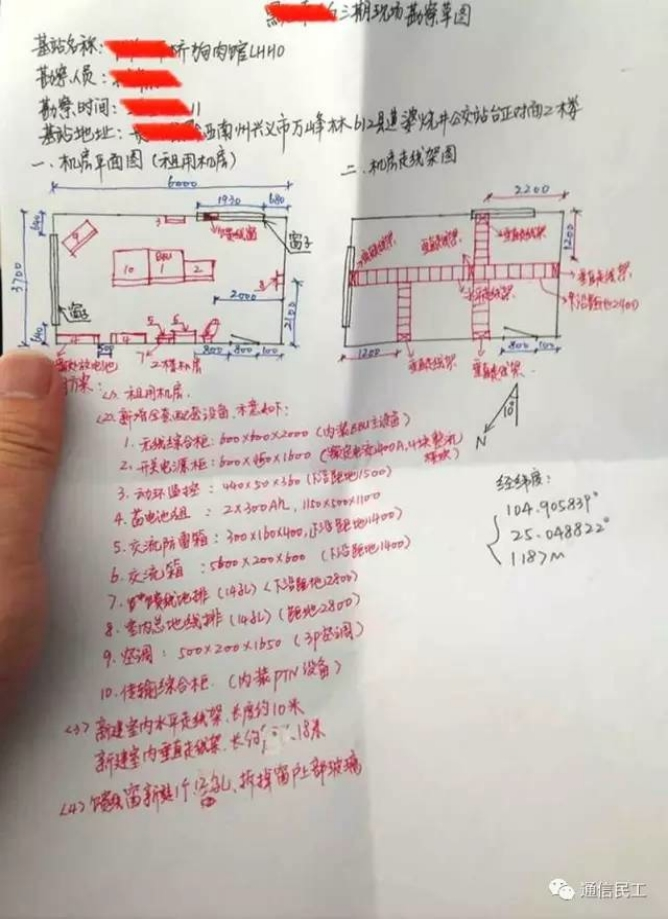 三期现场勘察草图
基站名称: 狗肉馆LHHO
勘察人员:
勘察时间: 11
基站地址: 西南州兴义市万峰林612县道梁烧井公交站台正对面2楼
一、机房平面图(租用机房)
二、机房走线架图
6000
1930 680
2200
640
3
馈线窗
窗子
9
10
BBU
1
2
8
3700
2000
2100
窗子
640
4
4
500
7
5
6
800
800
100
2楼机房
垂直走线架
垂直走线架
垂直走线架
1200
水平走线架
垂直走线架
下沿距地2400
1200
垂直走线架
垂直走线架
800
100
方案:
<1>、租用机房.
<2>、新增全套配套设备,示意如下:
1. 无线综合柜: 600×600×2000 (内装BBU主设备)
2. 开关电源柜: 600×450×1600 (额定电流400A, 4块整流模块)
3. 动环监控: 440×50×360 (下沿距地1500)
4. 蓄电池组: 2×300Ah, 1150×500×1100
5. 交流防雷箱: 300×160×400, (下沿距地1400)
6. 交流箱: 5600×200×600 (下沿距地1400)
7. 馈线地排 (14孔) (下沿距地2800)
8. 室内总地线排 (14孔) (距地2800)
9. 空调: 500×200×1650 (3P空调)
10. 传输综合柜. (内装PTN设备)
<3> 新建室内水平走线架, 长度约10米
新建室内垂直走线架, 长约 18米
<4> 馈线窗新装1个, 拆掉窗户上部玻璃
N
10°
经纬度:
104.905839°
25.048822°
1187m
通信民工